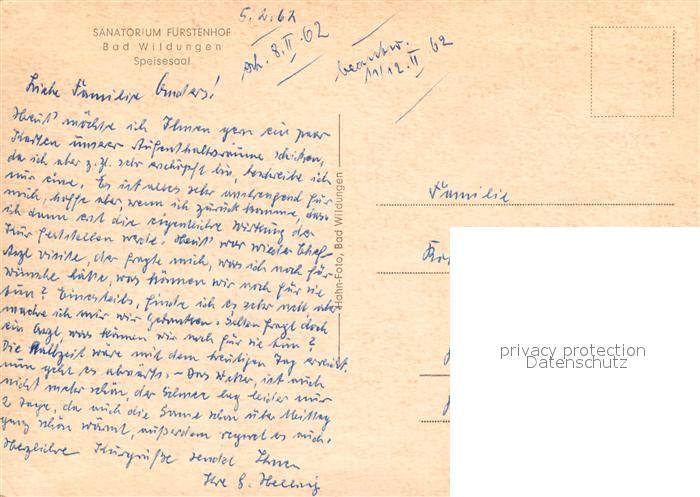 SANATORIUM FÜRSTENHOF
Bad Wildungen
Speisesaal
5.2.62
erh. 8.II.62
beantw.
11/12.II 62
Liebe Familie Enders!
Heut' möchte ich Ihnen gern ein paar
Karten unserer Aufenthaltsräume schicken,
da ich aber z.Zt. sehr erschöpft bin, beschreibe ich
nur eine. Es ist alles sehr anstrengend für
mich, hoffe aber, wenn ich zurück komme, dass
ich dann erst die eigentliche Wirkung der
Kur feststellen werde. Heut' war wieder Chef-
arzt visite, der fragte mich, was ich noch für
wünsche hätte, was können wir noch für sie
tun? Einesteils, finde ich es sehr nett aber
mache ich mir wir Gedanken. Selten fragt doch
ein Arzt was können wir noch für sie tun?
Die Halbzeit wäre mit dem heutigen Tag erreicht,
nun geht es abwärts. - Das Wetter, ist auch
nicht mehr schön, der Schnee lag leider nur
2 Tage, da auch die Sonne schon über Mittag
ganz schön wärmt, außerdem regnet es auch.
Herzliche Kurgrüße sendet Ihnen
Ihre G. Hellwig
Hahn-Foto, Bad Wildungen
Familie
privacy protection
Datenschutz